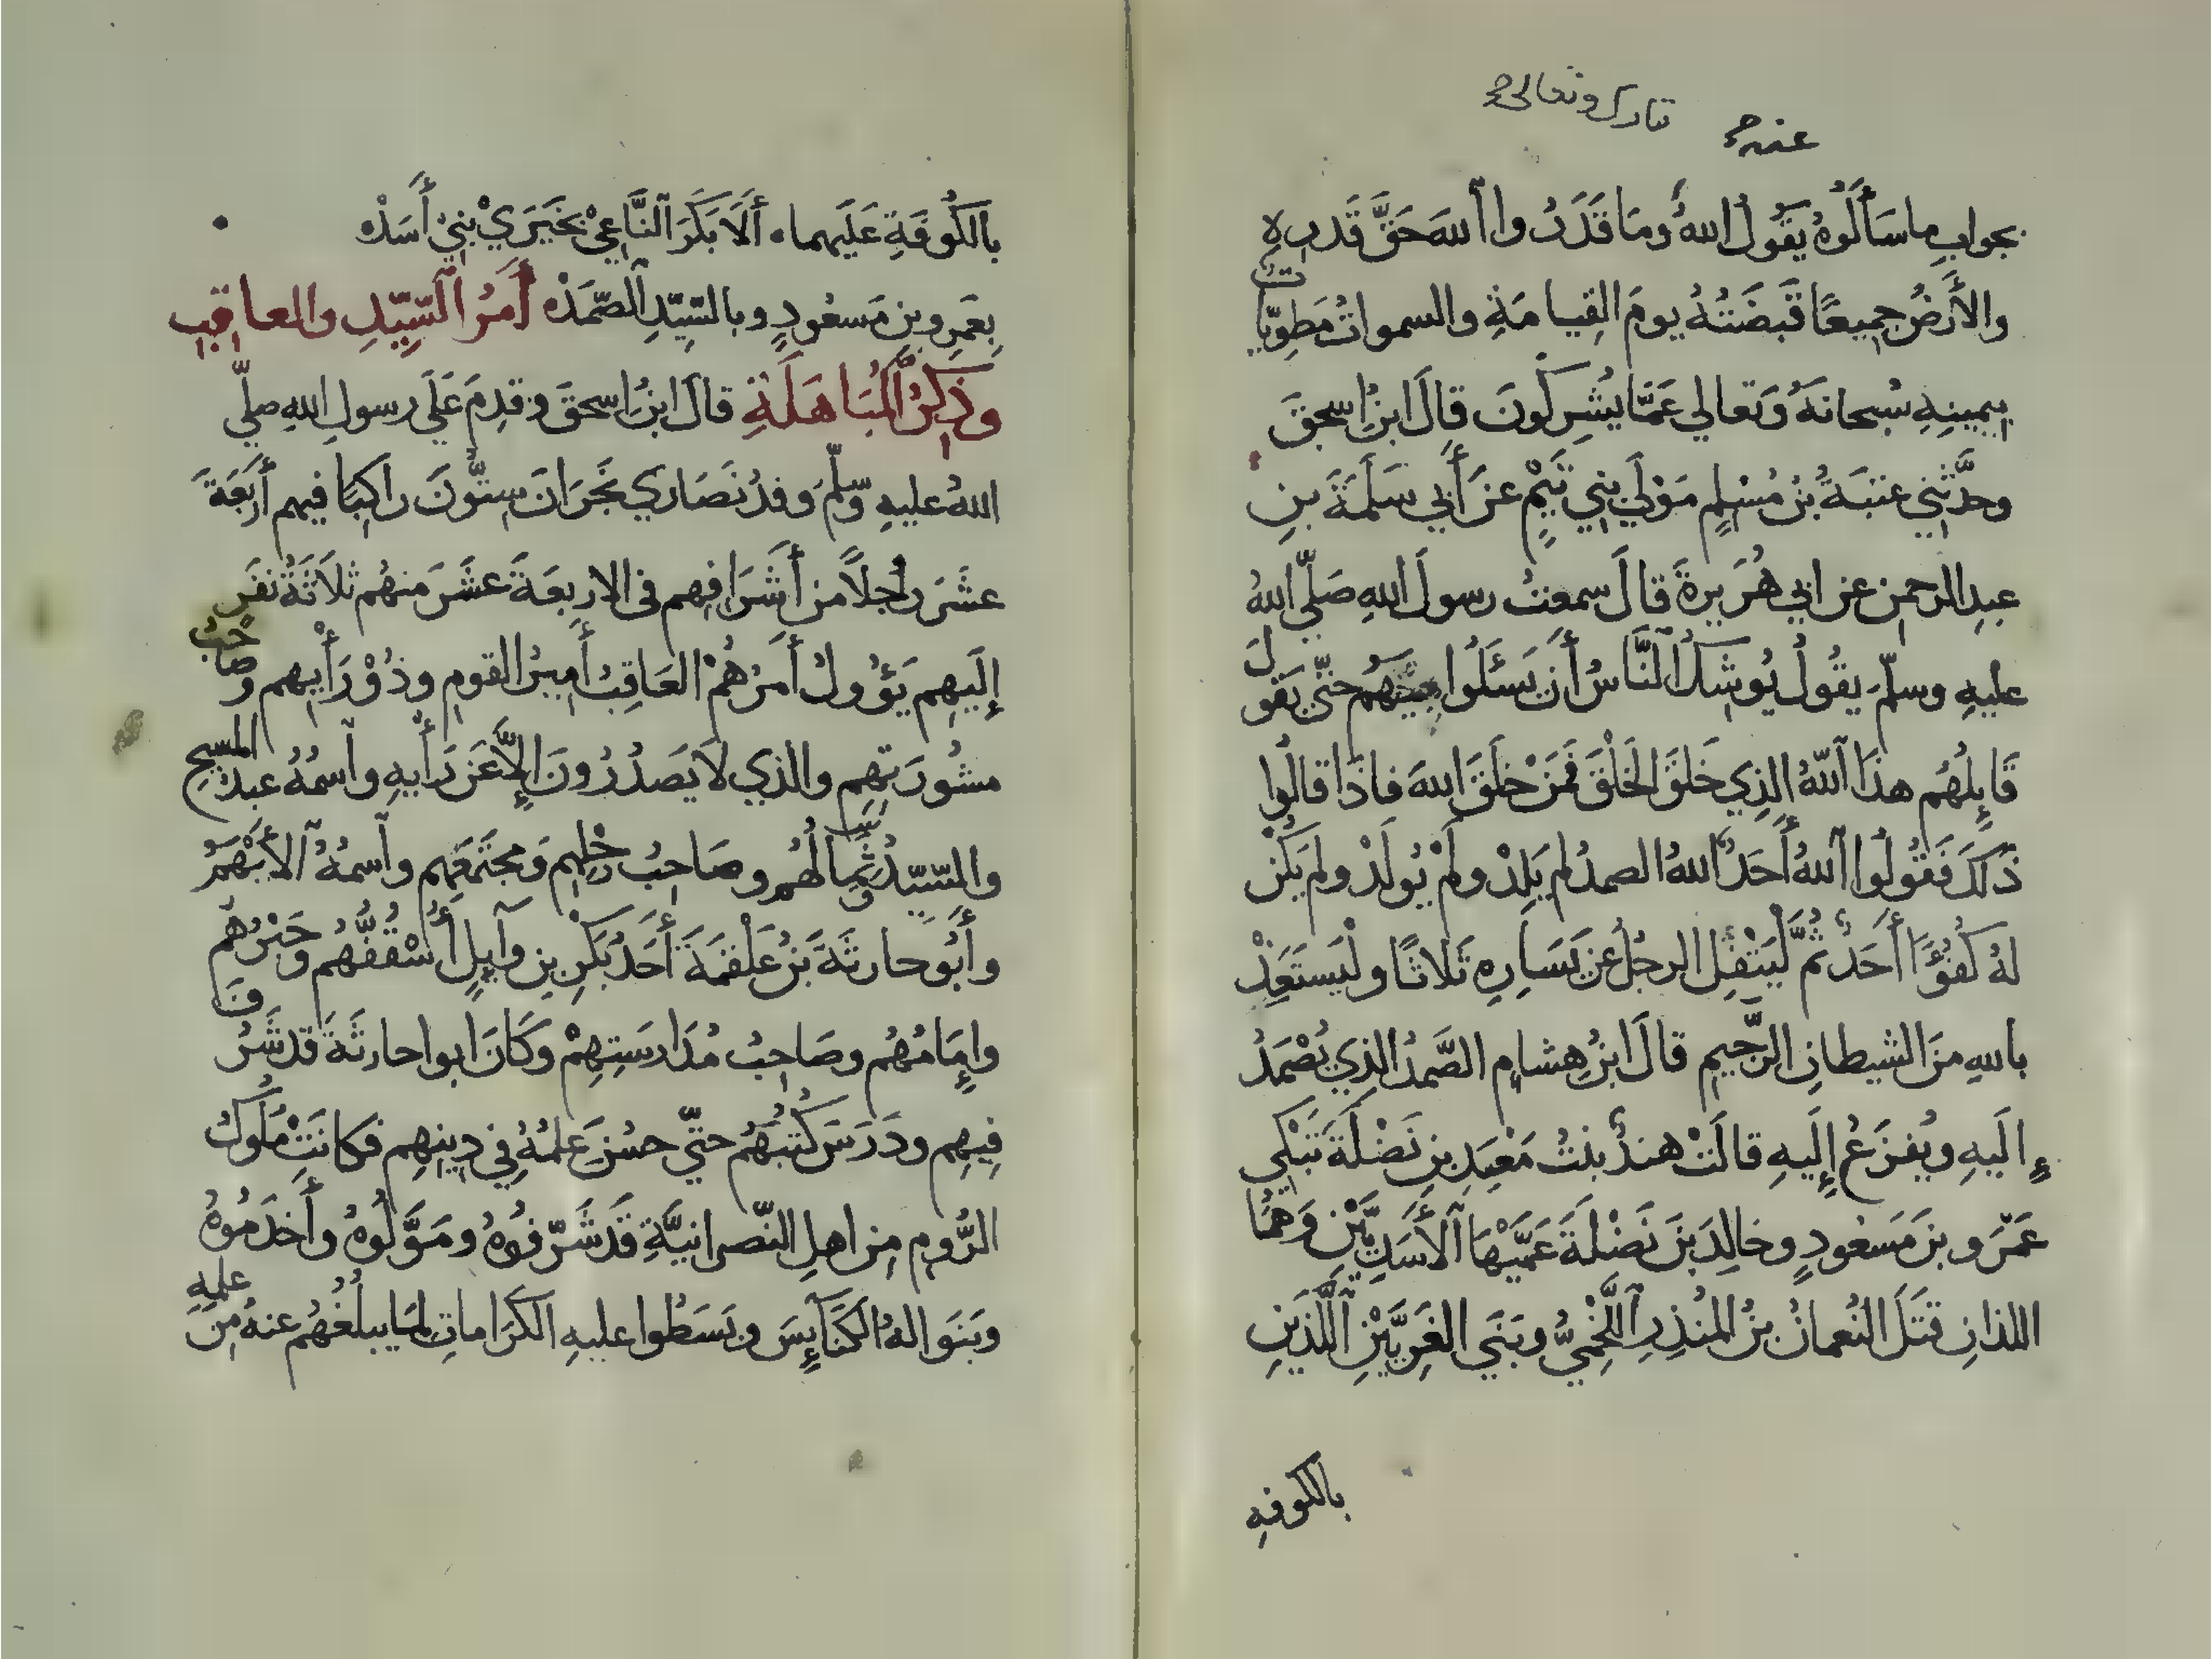 تبارك وتعالى
عنه
بجواب ما سَأَلُوهُ يَقُولُ اللهُ وَمَا قَدَرُوا اللهَ حَقَّ قَدرِهِ
والأَرضُ جميعًا قَبضَتُهُ يومَ القِيامَةِ والسمواتُ مَطوِيّاتٌ
بِيمينِهِ سُبحانَهُ وَتعالي عَمَّا يُشرِكُونَ قالَ ابنُ اسحقَ
وحدَّثني عتبَةُ بنُ مُسْلِمٍ مَوْلَي بني تَيْمٍ عن أَبي سَلَمَةَ بنِ
عبدِ الرحمنِ عن ابي هُرَيرةَ قالَ سمعتُ رسولَ اللهِ صَلّي اللهُ
عليهِ وسلّمَ يقُولُ يُوشِكُ النَّاسُ أَن يَسَئَلُوا بينهم حتّي يَقولَ
قَايِلُهُم هذا اللّهُ الذِي خَلَقَ الخَلْقَ فمَنْ خَلَقَ اللهَ فاذَا قالُوا
ذَلكَ فَقُولُوا اللهُ أَحَدٌ اللهُ الصمدُ لم يَلِدْ ولَمْ يُولَدْ ولم يَكُنْ
لهُ كُفُؤًا أَحَدٌ ثُمَّ لْيَتْفِلِ الرجُلُ عن يَسَارِهِ ثَلاثًا ولْيَستَعِذْ
باللهِ منَ الشيطانِ الرَّجيمِ قالَ ابنُ هِشامٍ الصَّمدُ الذِي يُصْمَدُ
إِلَيهِ ويُفزَعُ إِلَيهِ قالَتْ هندٌ بنتُ مَعْبَدِ بنِ نَضْلَةَ تَبْكي
عَمْرَو بنَ مَسعُودٍ وخالِدَ بنَ نَضْلَةَ عَمَّيْهَا الأَسَدِيَّيْنِ وَهُمَا
اللذانِ قَتَلَ النُعمانُ بنُ المُنذِرِ اللَّخْمِيُّ وبَنَي الغَرِيَّيْنِ اللَّذَينِ
بالكوفه
بالكُوفَةِ عَلَيهما ٠ أَلَا بَكَرَ النَّاعِي بخَيرَيْ بني أَسَدْ ٥
بِعَمرِو بنِ مَسعُودٍ وبالسّيّدِ الصّمَدْ ٥ أَمرُ السّيّدِ والعاقبِ
وذِكرُ المُبَاهَلَةِ قالَ ابنُ اسحقَ وقدِمَ عَلَي رسولِ اللهِ صلّي
اللهُ عليهِ وسلّمَ وفدُ نَصَارَي نَجرَانَ ستُّونَ راكبًا فيهم أَربَعَةَ
عشَرَ رَجلاً من أَشرَافِهم في الاربعَةَ عشَرَ منهُم ثلاَثَةُ نَفَرٍ
إِلَيهِم يَؤُولُ أَمرُهُمْ العَاقبُ أَميرُ القومِ وذُوْ رَأيِهم وصاحبُ
مشُورَتِهِم والذي لا يَصدُرُونَ إلاَّ عن رَأيهِ واسمُهُ عبدُ المسيحِ
والسّيّدُ ثِمالُهُم وصَاحبُ رَحْلِهِم وَمجتَمَعِهِم واسمُهُ الأَيْهَمُ
وأَبُو حارثَةَ بنُ عَلْقَمَةَ أَحَدُ بَكْرِ بنِ وآيِلٍ أُسْقُفُّهُم وحَبْرُهُم
وإِمَامُهُم وصَاحبُ مُدَارستِهِمْ وكَانَ ابوا حارثَةَ قد شَرُفَ
فيهِم ودَرَسَ كُتُبَهُم حتّي حسُنَ عِلمُهُ في دِينِهِم فكانَتْ مُلُوكُ
الرُّومِ مِن اهلِ النّصرانيَّةِ قَد شَرَّفُوهُ ومَوَّلُوهُ وأَخدَمُوهُ
وبَنَوا لهُ الكَنَآيِسَ وبَسَطُوا عليهِ الكَرَاماتِ لما يبلُغُهُم عنهُ مِن علمِهِ